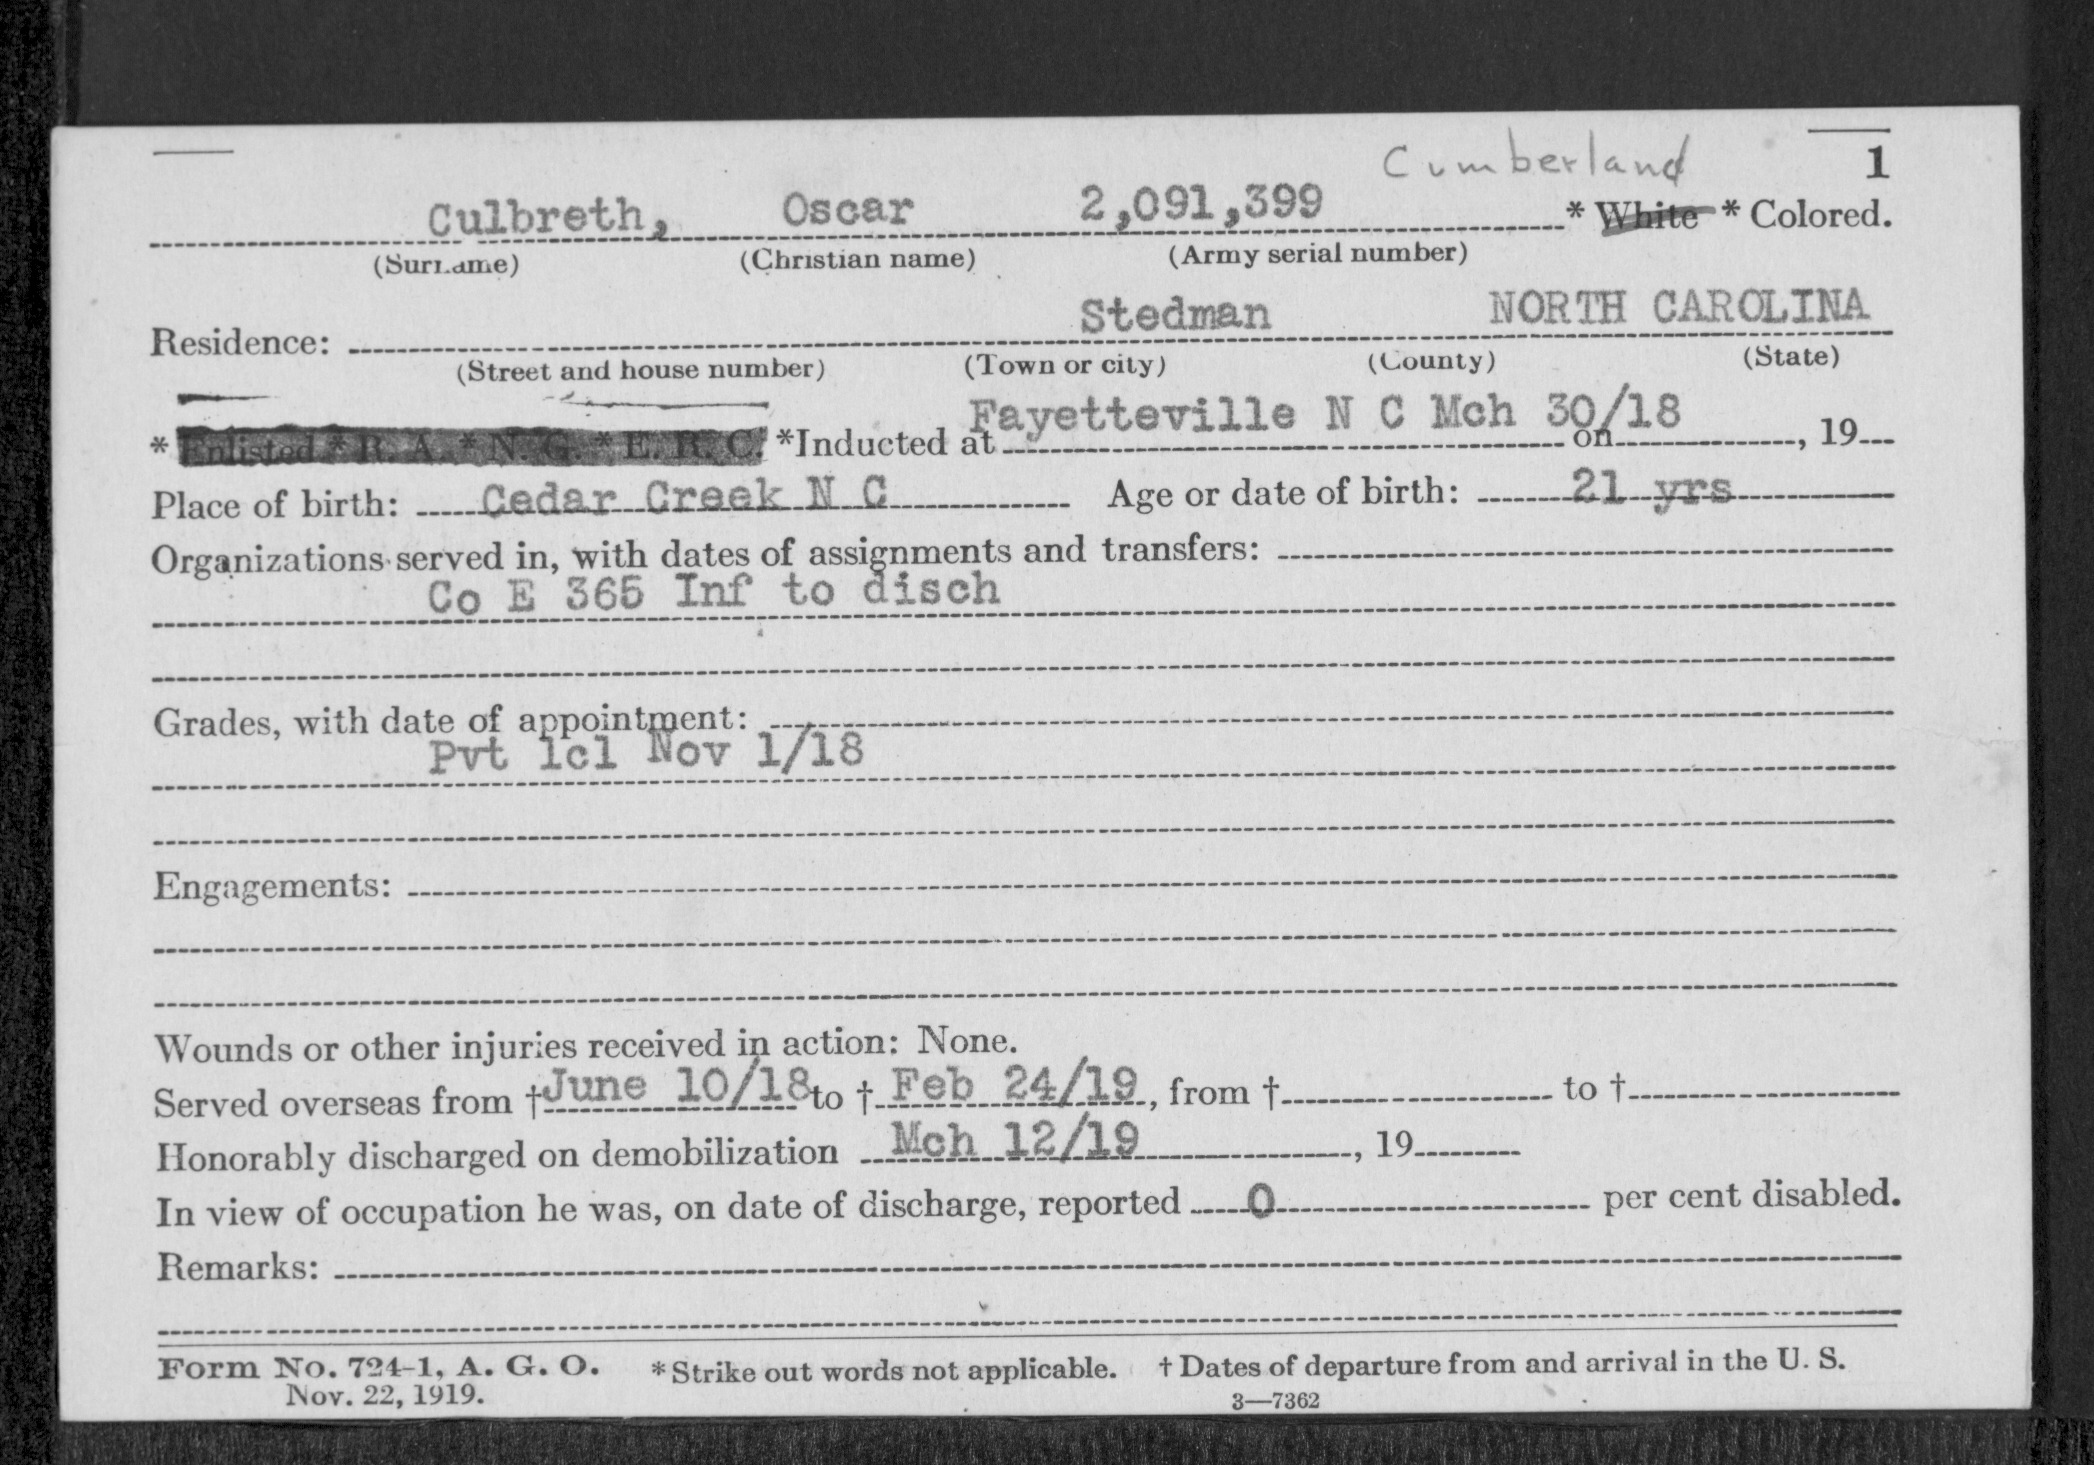 Cumberland 1
Culbreth, Oscar 2,091,399 * White * Colored.
(Surname) (Christian name) (Army serial number)
Residence: Stedman NORTH CAROLINA
(Street and house number) (Town or city) (County) (State)
* Enlisted * R. A. * N. G. * E. R. C. *Inducted at Fayetteville N C Mch 30/18 on , 19
Place of birth: Cedar Creek N C Age or date of birth: 21 yrs
Organizations served in, with dates of assignments and transfers:
Co E 365 Inf to disch
Grades, with date of appointment:
Pvt 1cl Nov 1/18
Engagements:
Wounds or other injuries received in action: None.
Served overseas from † June 10/18 to † Feb 24/19, from † to †
Honorably discharged on demobilization Mch 12/19 , 19
In view of occupation he was, on date of discharge, reported 0 per cent disabled.
Remarks:
Form No. 724-1, A. G. O. * Strike out words not applicable. † Dates of departure from and arrival in the U. S.
Nov. 22, 1919. 3—7362